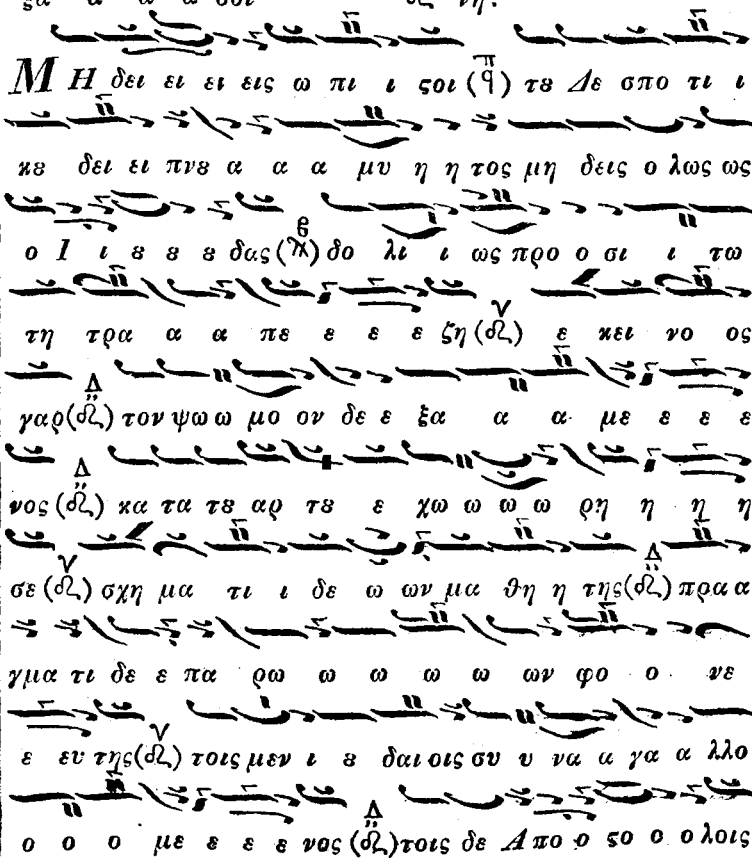 ξα α α α σοι νη.
ΜΗ δει ει ει εις ω πι ι ϛοι (π̈ q) τȣ Δε σπο τι ι
κȣ δει ει πνȣ α α α μυ η η τος μη δεις ο λως ως
ο Ι ι ȣ ȣ ȣ δας ( ) δο λι ι ως προ ο σι ι τω
τη τρα α α πε ε ε ε ζη ( ) ε κει νο ος
γαρ ( ) τον ψω ω μο ον δε ε ξα α α με ε ε ε
νος ( ) κα τα τȣ αρ τȣ ε χω ω ω ω ρη η η η
σε ( ) σχη μα τι ι δε ω ων μα θη η της ( ) πρα α
γμα τι δε ε πα ρω ω ω ω ω ων φο ο νε
ε ευ της ( ) τοις μεν ι ȣ δαι οις συ υ να α γα α λλο
ο ο ο με ε ε ε νος ( ) τοις δε Α πο ο ϛο ο ο λοις